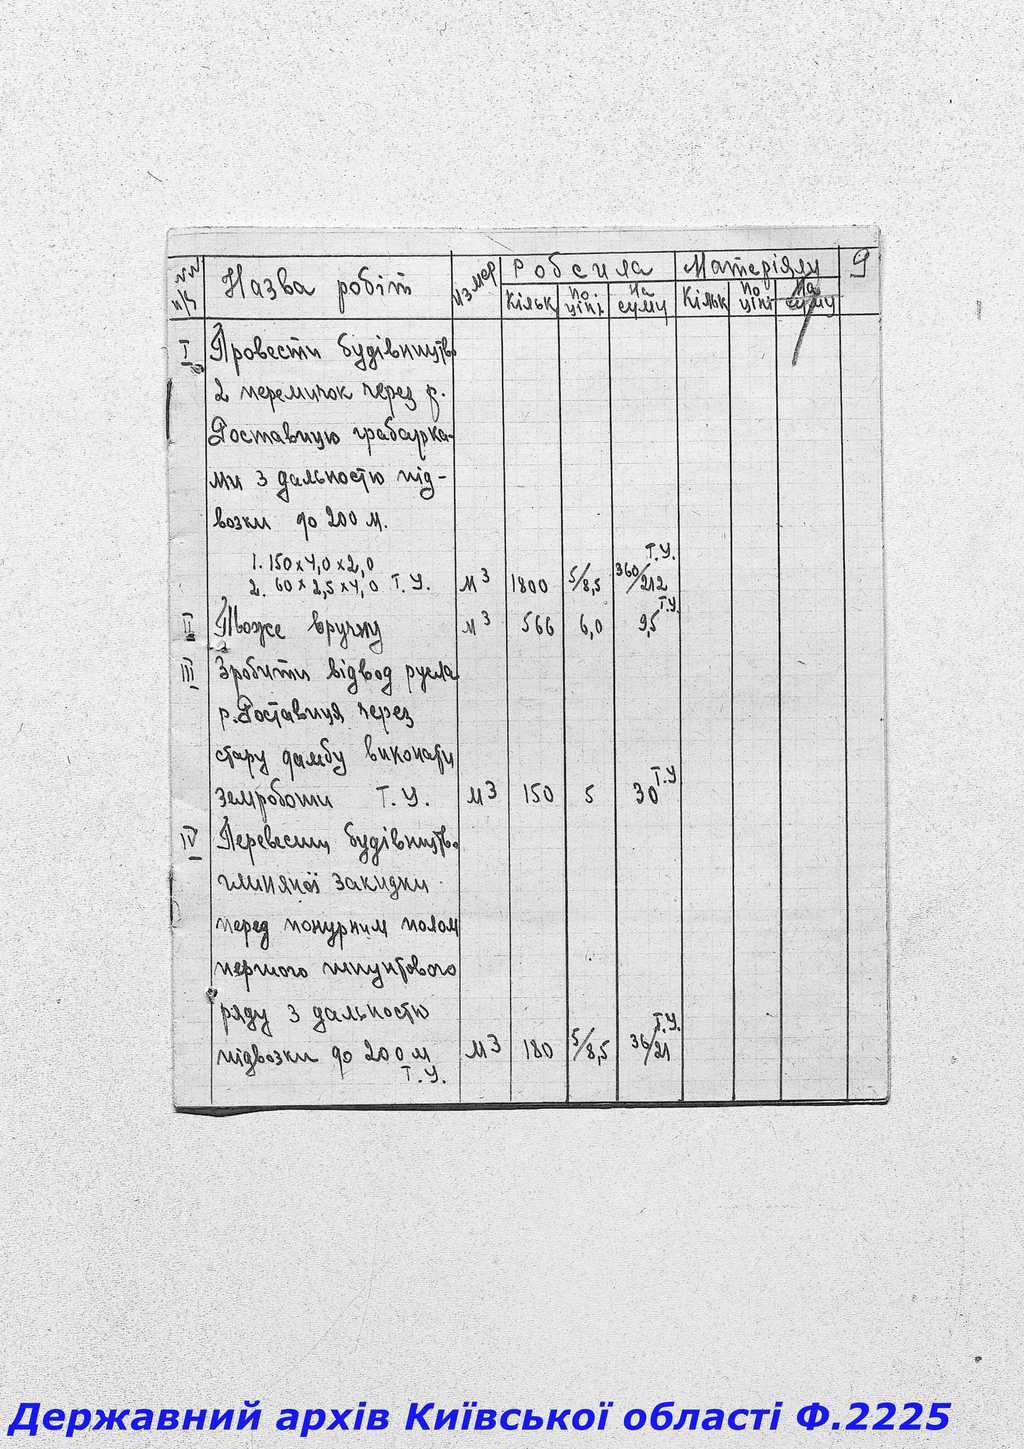 №№ п/ч Назва робіт измер Робсила Матеріялу 9
Кільк по ціні На суму Кільк по ціні На суму
I Провести будівництво
2 перемичок через р.
Роставицю грабарка-
ми з дальностю під-
возки до 200 м.
1. 150 x 4,0 x 2,0
2. 60 x 2,5 x 4,0 Т.У. м3 1800 5/8,5 360/212 Т.У.
II Тоже вручну м3 566 6,0 9,5 Т.У.
III Зробити відвод русла
р. Роставиця через
стару дамбу виконати
земроботи Т.У. м3 150 5 30 Т.У.
IV будівництво
глиняної закидки
перед понурним полом
першого шпунтового
ряду з дальностю
підвозки до 200 м м3 180 5/8,5 36/21 Т.У.
Т.У.
Державний архів Київської області Ф.2225